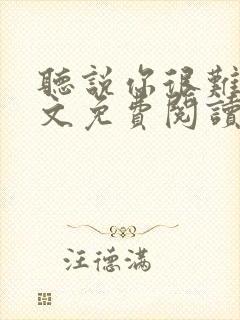 聽說你很難
文免費閱讀
汪德滿